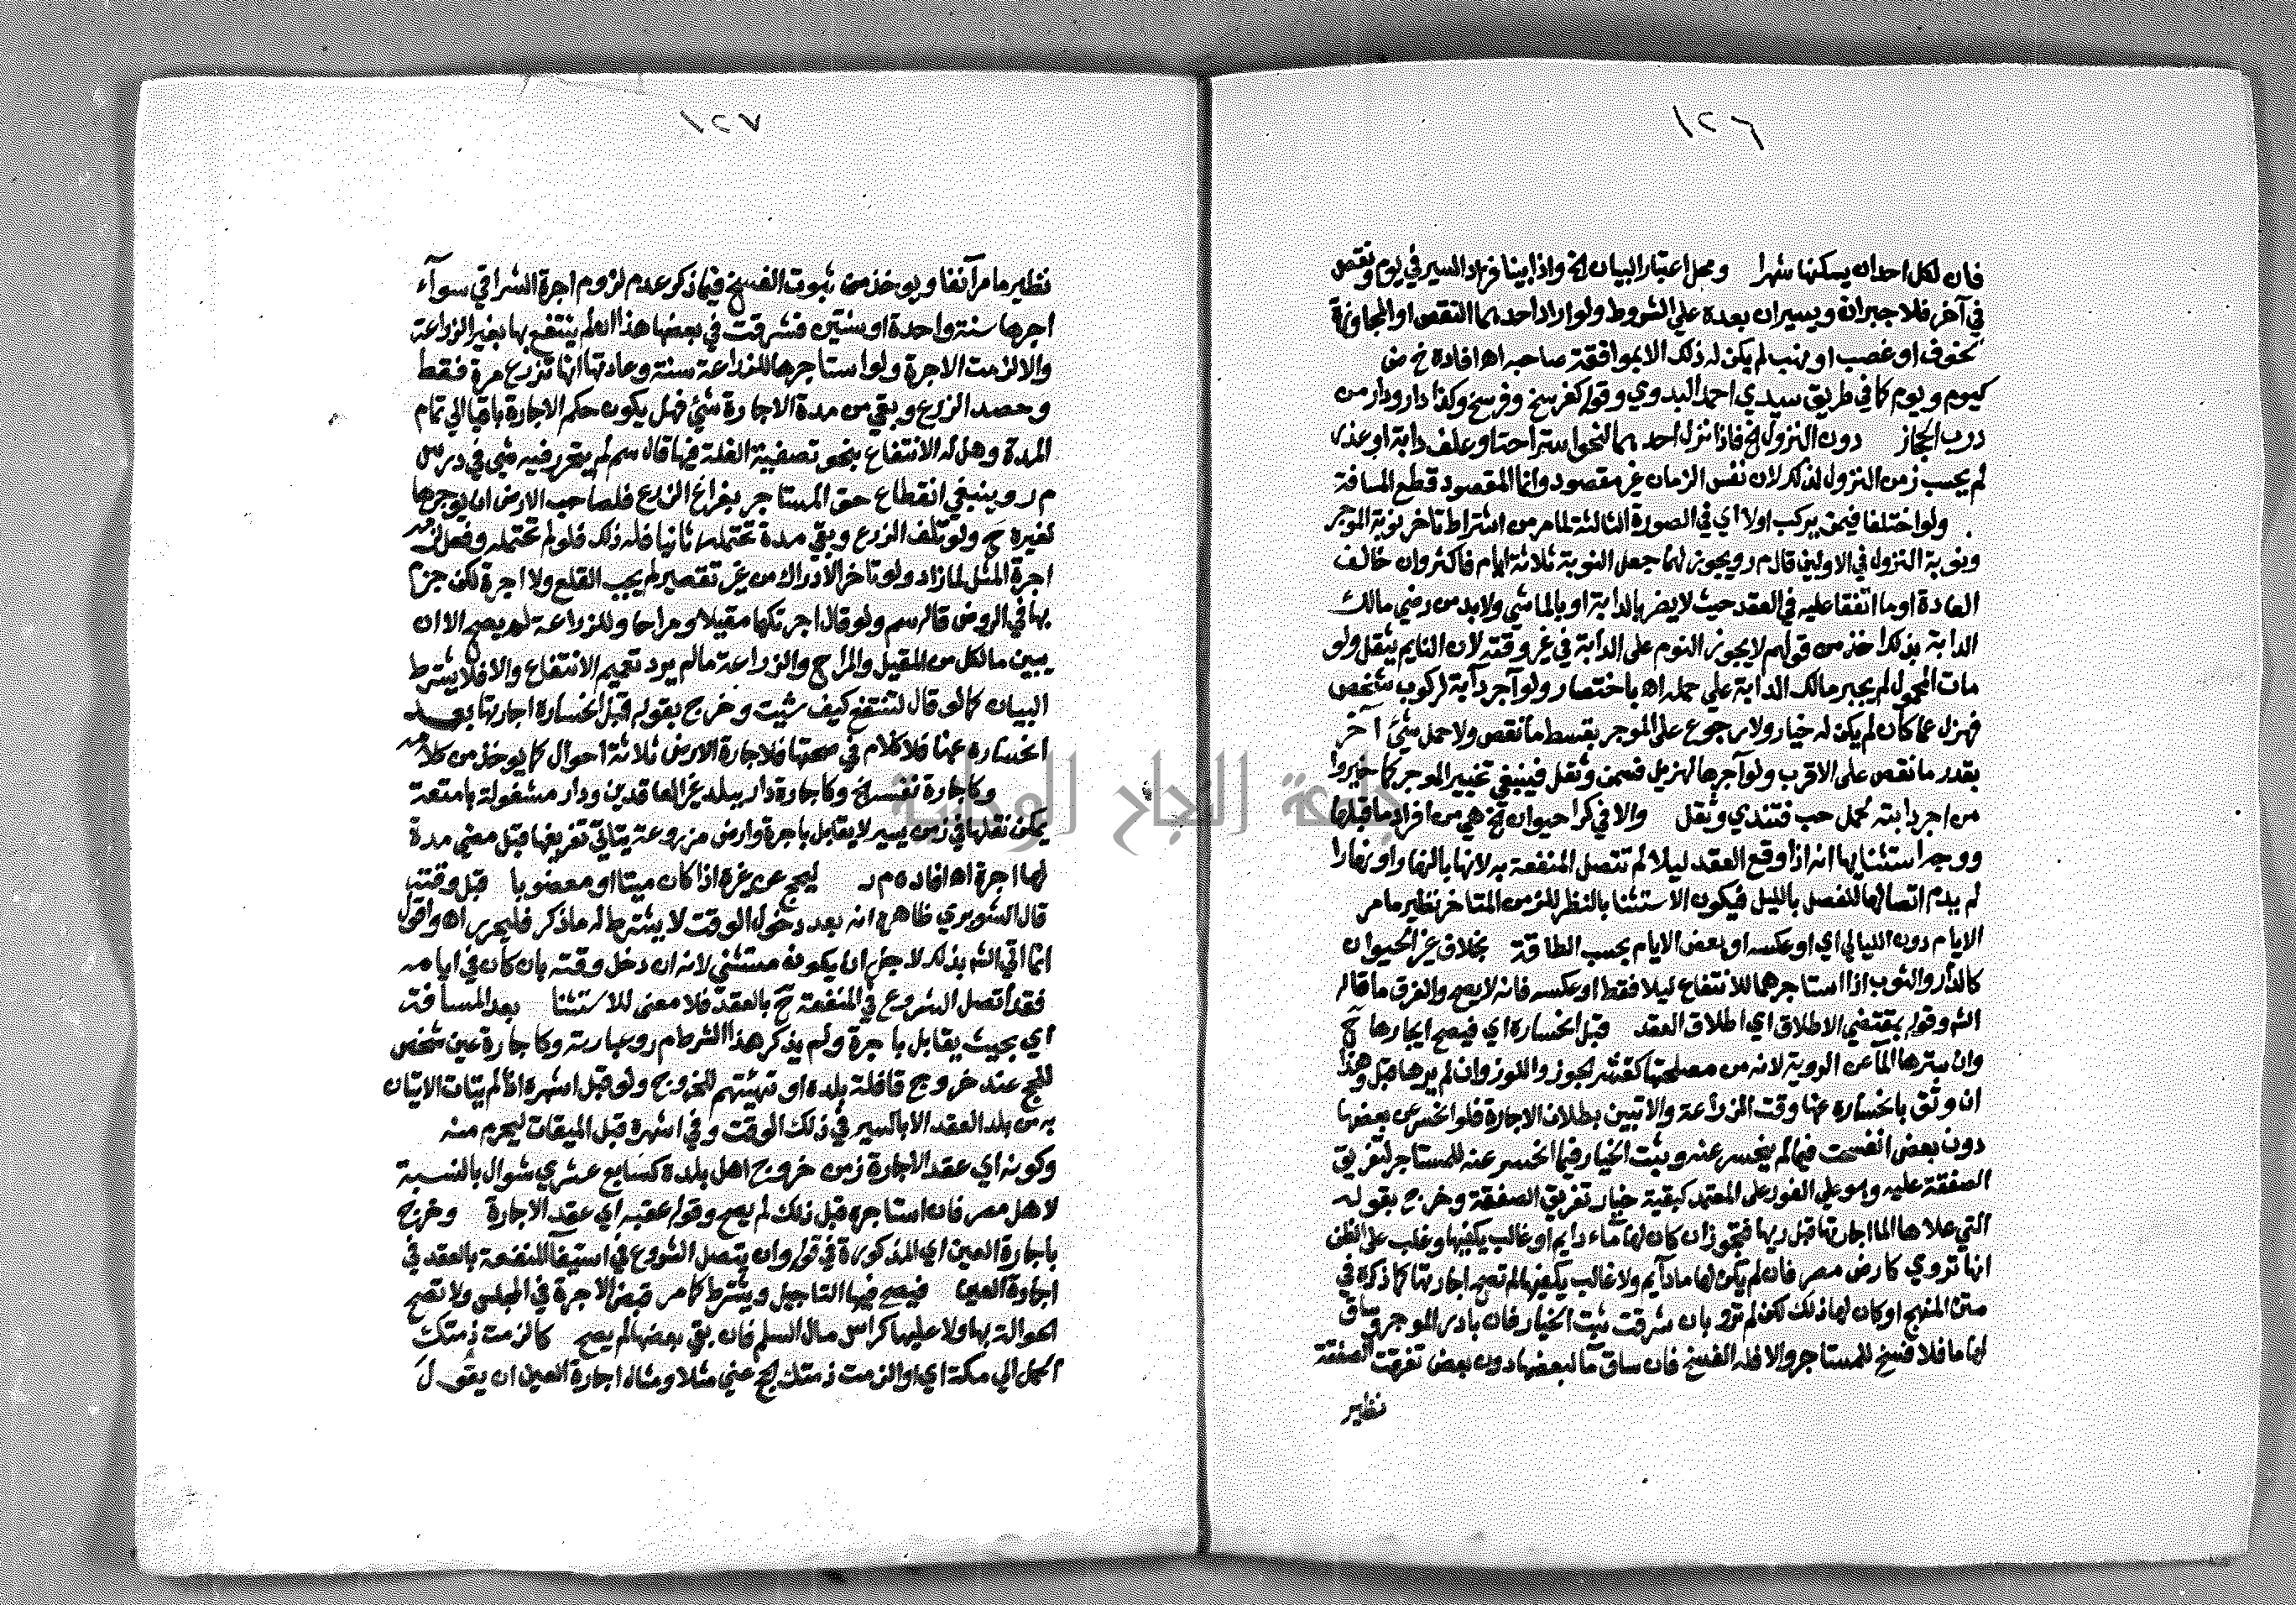 ١٢٦
فان لكل احد ان يسكنها شهرا ومحل اعتبار البيان الخ واذا بينا فزاد السير في يوم ونقص
في آخر فلا جبران ويسيران بعده علي الشروط ولو اراد احدهما النقص او المجاوزة
لخوف او غصب او نهب لم يكن له ذلك الا بموافقة صاحبه اه افاده خ ض
كيوم ويوم كما في طريق سيدي احمد البدوي وقوله كفرسخ وفرسخ وكذا دار ودار من
درب الحجاز دون النزول الخ فاذا نزل احدهما لنحو استراحة او علف دابة او عذر
لم يحسب زمن النزول لذلك لان نفس الزمان غير مقصود وانما المقصود قطع المسافة
ولو اختلفا فيمن يركب اولا اي في الصورة الثالثة لما مر من اشتراط تاخر نوبة الموجر
ونوبة النزول في الاولين قال م ر ويجوز لهما جعل النوبة ثلاثة ايام فاكثر وان خالف
العادة او ما اتفقا عليه في العقد حيث لا يضر بالدابة او بالماشي ولا بد من رضي مالك
الدابة بذلك اخذ من قولهم لا يجوز النوم على الدابة في غير وقته لان النايم يثقل ولو
مات المحمول لم يجبر مالك الدابة علي حمله اه باختصار ولو آجر دابة لركوب شخص
فهزل عما كان لم يكن له خيار ولا رجوع على الموجر بقسط ما نقص ولا حمل شئ آخر
بقدر ما نقص على الاقرب ولو آجرها لهزيل فسمن وثقل فينبغي تخيير الموجر كما خيروا
من اجر دابته لحمل حب فتندي وثقل والا في كرا حيوان الخ هي من افراد ما قبلها
ووجه استثنايها انه اذا وقع العقد ليلا لم تتصل المنفعة به لانها بالنهار او نهارا
لم يدم اتصالها للفصل بالليل فيكون الاستثنا بالنظر للزمن المتاخر نظير ما مر
الايام دون الليالي اي او عكسه او بعض الايام بحسب الطاقة بخلاف غير الحيوان
كالدار والثوب اذا استاجرهما للانتفاع ليلا فقط او عكسه فانه لا يصح والفرق ما قاله
الش وقوله بمقتضي الاطلاق اي اطلاق العقد قبل انحساره اي فيصح ايجارها ح
وان سترها الماء عن الروية لانه من مصلحتها كقشر الجوز واللوز وان لم يرها قبل وهذا
ان وثق بانحساره عنها وقت الزراعة والا تبين بطلان الاجارة فلو انحسر عن بعضها
دون بعض انفسخت فيما لم ينحسر عنه وثبت الخيار فيما انحسر عنه للمستاجر لتفريق
الصفقة عليه وهو علي الفور على المعتمد كبقية خيار تفريق الصفقة وخرج بقوله
التي علاها الما اجارتها قبل ريها فتجوز ان كان لها ماء دايم او غالب يكفيها وغلب على الظن
انها تروي كارض مصر فان لم يكن لها ما دآيم ولا غالب يكفيها لم تصح اجارتها كما ذكره في
متن المنهج او كان لها ذلك لكن لم ترو بان شرقت ثبت الخيار فان بادر الموجر وساق
لها ما فلا فسخ للمستاجر والا فله الفسخ فان ساق مآ لبعضها دون بعض تفرقت الصفقة
نظير
١٢٧
نظير ما مر آنفا ويوخذ من ثبوت الفسخ فيما ذكر عدم لزوم اجرة الشراقي سوآء
اجرها سنة واحدة او سنتين فشرقت في بعضها هذا ان لم ينتفع بها بغير الزراعة
والا لزمت الاجرة ولو استاجرها للزراعة سنة وعادتها انها تزرع مرة فقط
وحصد الزرع وبقي من مدة الاجارة شئ فهل يكون حكم الاجارة باقيا الي تمام
المدة وهل له الانتفاع بنحو تصفية الغلة فيها قال سم لم يتحرر فيه شي في درس
م ر وينبغي انقطاع حق المستاجر بفراغ الزرع فلصاحب الارض ان يوجرها
لغيره ح ولو تلف الزرع وبقي مدة تحتمله ثانيا فله ذلك فلو لم تحتمله وفعل لزمه
اجرة المثل لما زاد ولو تاخر الادراك من غير تقصير لم يجب القلع ولا اجرة لكن جزم
بها في الروض قاله سم ولو قال اجرتكها مقيلا ومراحا وللزراعة لم يصح الا ان
يبين ما لكل من المقيل والمراح والزراعة ما لم يرد تعميم الانتفاع والا فلا يشترط
البيان كما لو قال لتنتفع كيف شيت وخرج بقوله قبل انحساره اجارتها بعد
انحساره عنها فلا كلام في صحتها فلاجارة الارض ثلاثة احوال كما يوخذ من كلامه
وكاجارة نفسه الخ وكاجارة دار ببلد غير العاقدين ودار مشغولة بامتعة
يمكن نقلها في زمن يسير لا يقابل باجرة وارض مزروعة يتاتي تفريغها قبل مضي مدة
لها اجرة اه افاده م ر ليحج عن غيره اذا كان ميتا او معضوبا قبل وقته
قال الشوبري ظاهره انه بعد دخول الوقت لا يشترط له ما ذكر فليحرر اه واقول
انما اتي الش بذلك لاجل ان يكون مستثني لانه ان دخل وقته بان كان في ايامه
فقد اتصل الشروع في المنفعة ح بالعقد فلا معنى للاستثنا بعد المسافة
اي بحيث يقابل باجرة ولم يذكر هذا الشرط م ر وعبارته وكاجارة عين شخص
للحج عند خروج قافلة بلده او تهيئتهم للخروج ولو قبل اشهره اذا لم يتات الاتيان
به من بلد العقد الا بالسير في ذلك الوقت وفي اشهره قبل الميقات ليحرم منه
وكونه اي عقد الاجارة زمن خروج اهل بلده كسابع عشري شوال بالنسبة
لاهل مصر فان استاجره قبل ذلك لم يصح وقوله عقبه اي عقد الاجارة وخرج
باجارة العين اي المذكورة في قوله وان يتصل الشروع في استيفآ المنفعة بالعقد في
اجارة العين فيصح فيها التاجيل ويشترط كما مر قبض الاجرة في المجلس ولا تصح
الحوالة بها ولا عليها كراس مال السلم فان بقي بعضها لم يصح كالزمت ذمتك
الحمل الي مكة اي او الزمت ذمتك الحج عني مثلا ومثال اجارة العين ان يقول
جامعة النجاح الوطنية